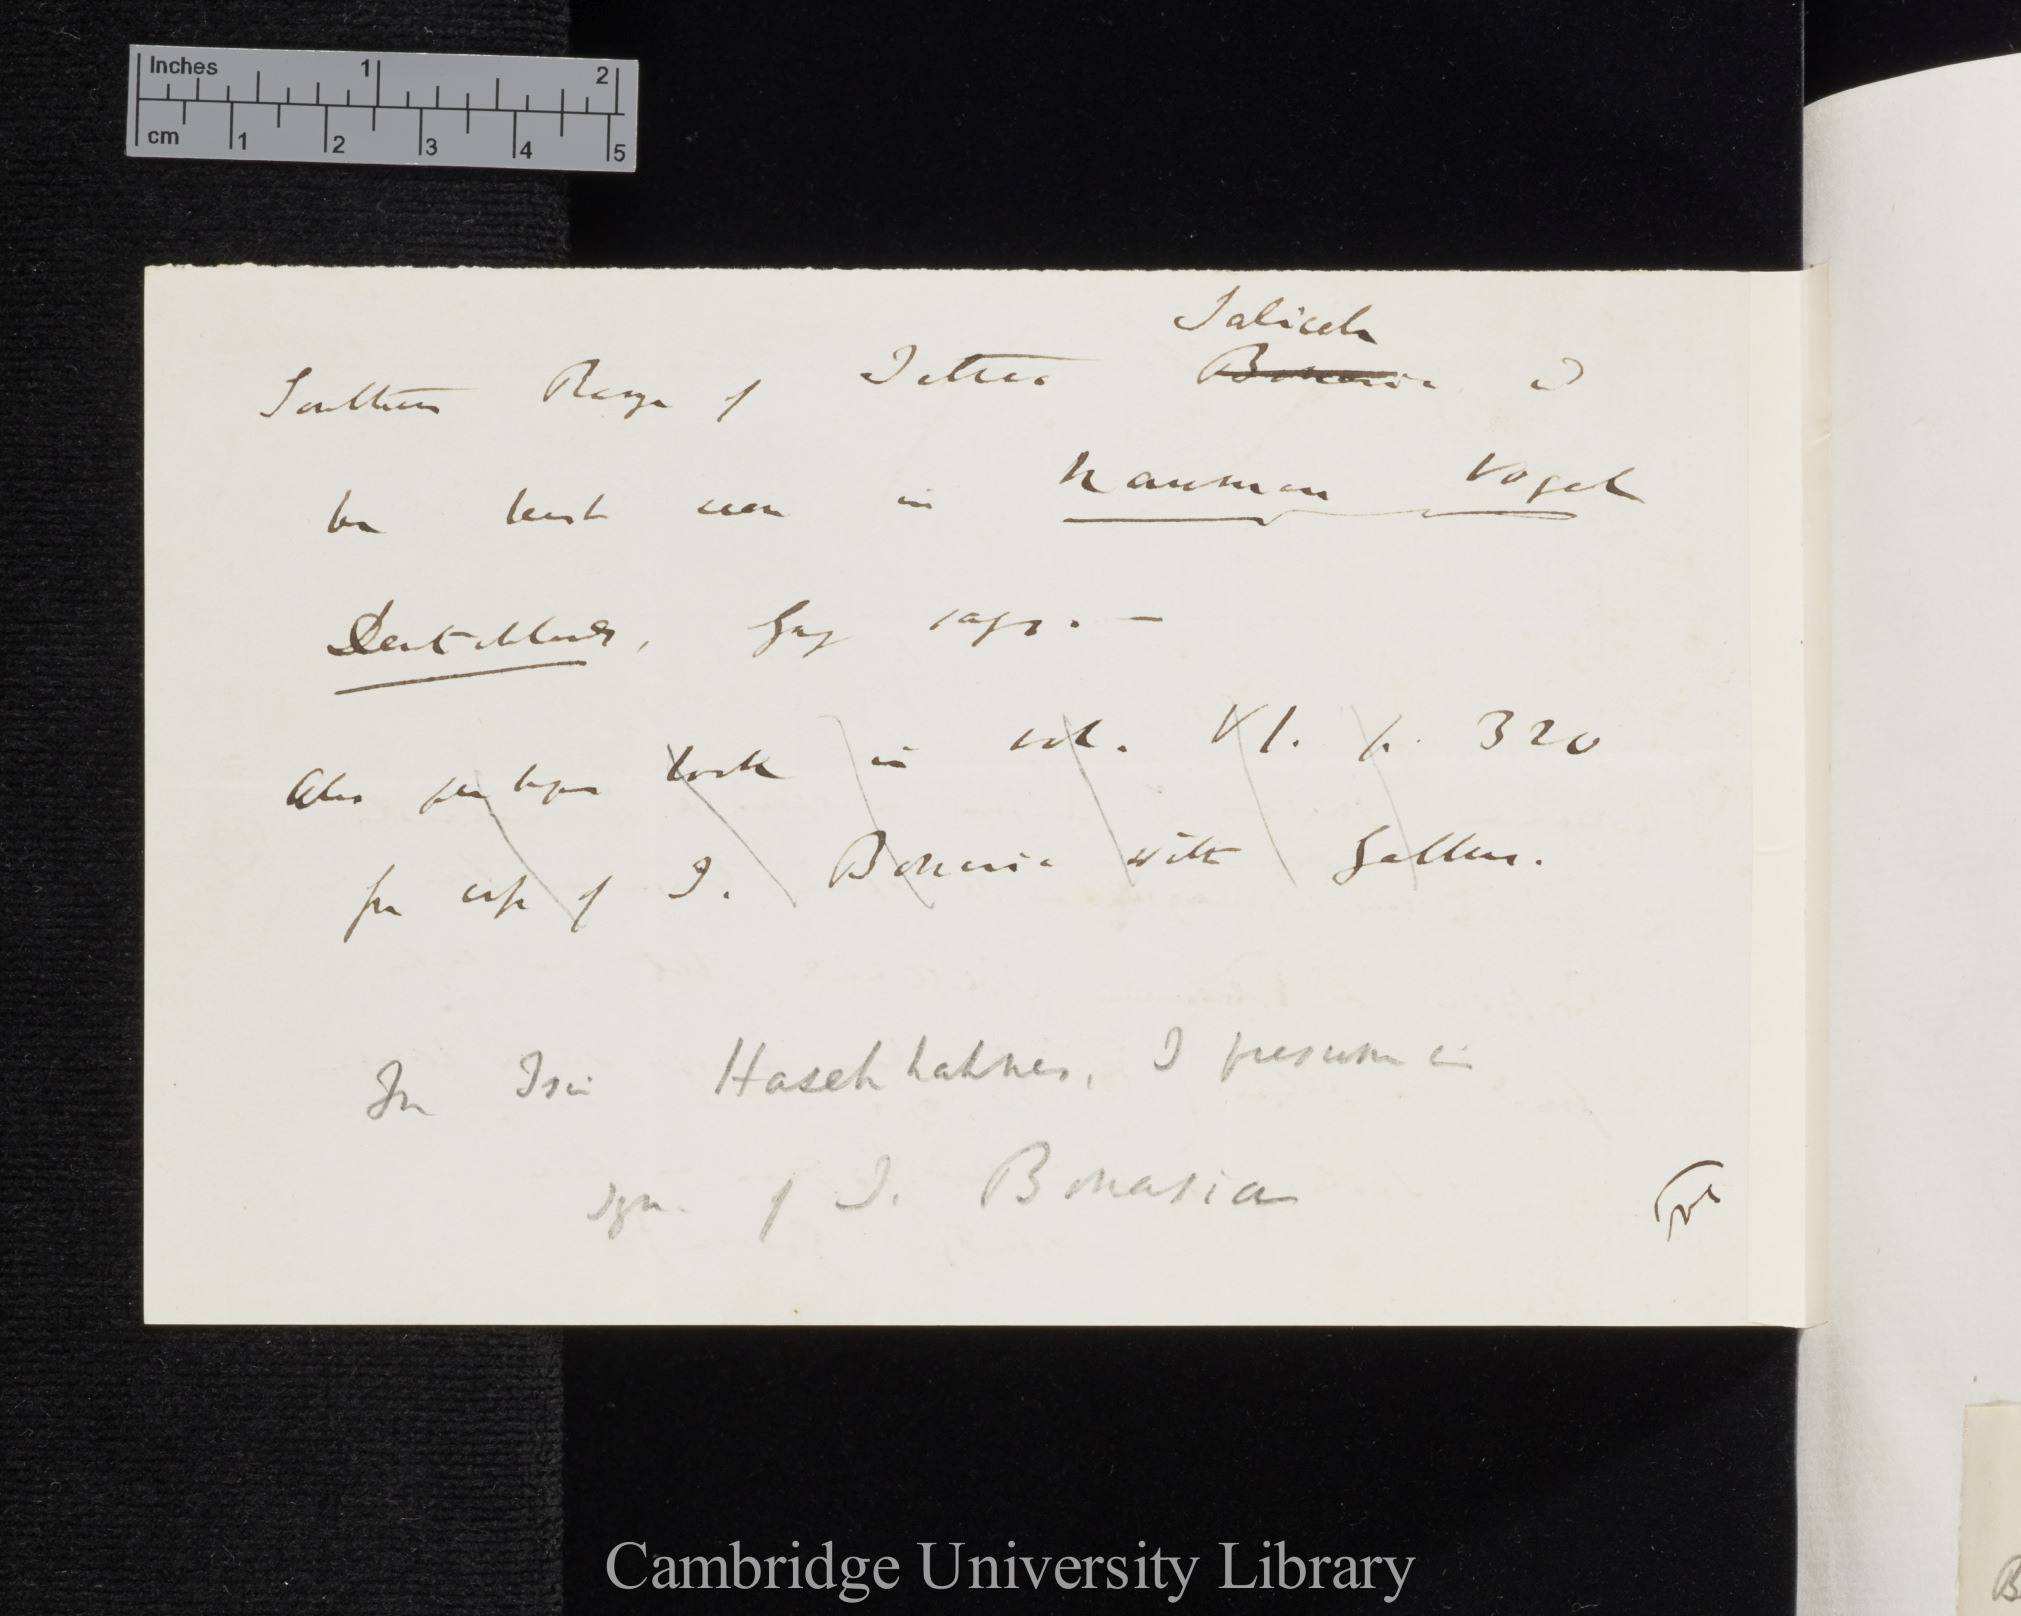 Inches 1 2
cm 1 2 3 4 5
Saliceti
Southern Range of Tetrao Bonasia w^d
be best seen in Nauman Vogel
Deutschlands, Gray says. —
Also perhaps look in vol. VI. p. 320
for cross of T. Bonasia with Gallus.
In Isis Haselhahner, I presume is
syn. of T. Bonasia
B
Cambridge University Library